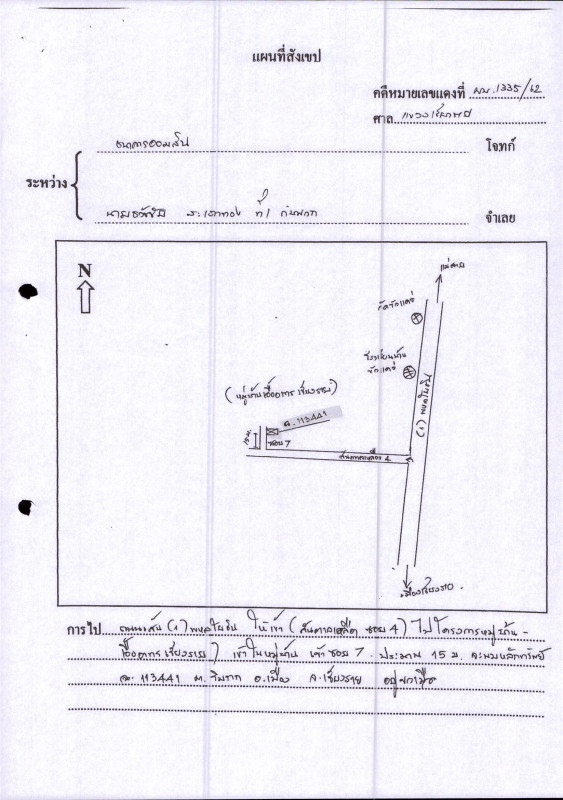 แผนที่สังเขป
คดีหมายเลขแดงที่ ผบ.1335/62
ศาล แขวงเชียงราย
ธนาคารออมสิน โจทก์
ระหว่าง
ที่ 1 กับพวก จำเลย
N
แม่สาย
วัดขัวแคร่
โรงเรียนบ้าน
ขัวแคร่
(1) พหลโยธิน
(หมู่บ้านเอื้ออาทร เชียงราย)
ฉ. 113441
15 ม.
ซอย 7
สันตาลเหลือง 4
เมืองเชียงราย
การไป ถนนเส้น (1) พหลโยธิน ให้เข้า (สันตาลเหลือง ซอย 4) ไปโครงการหมู่บ้าน -
เอื้ออาทร เชียงราย) เข้าในหมู่บ้าน เข้าซอย 7 . ประมาณ 15 ม. จะพบหลักทรัพย์
ฉ. 113441 ต. ริมกก อ.เมือง จ.เชียงราย อยู่ขวามือ